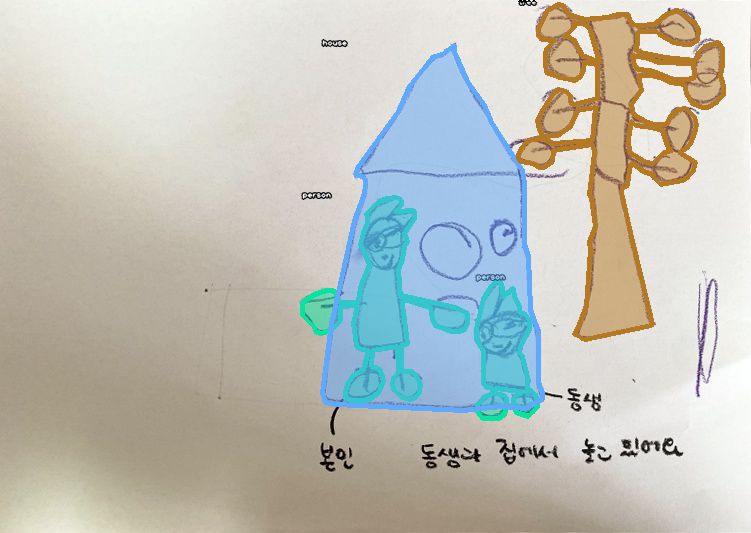 tree
house
person
person
동생
본인
동생과 집에서 놀고 있어요